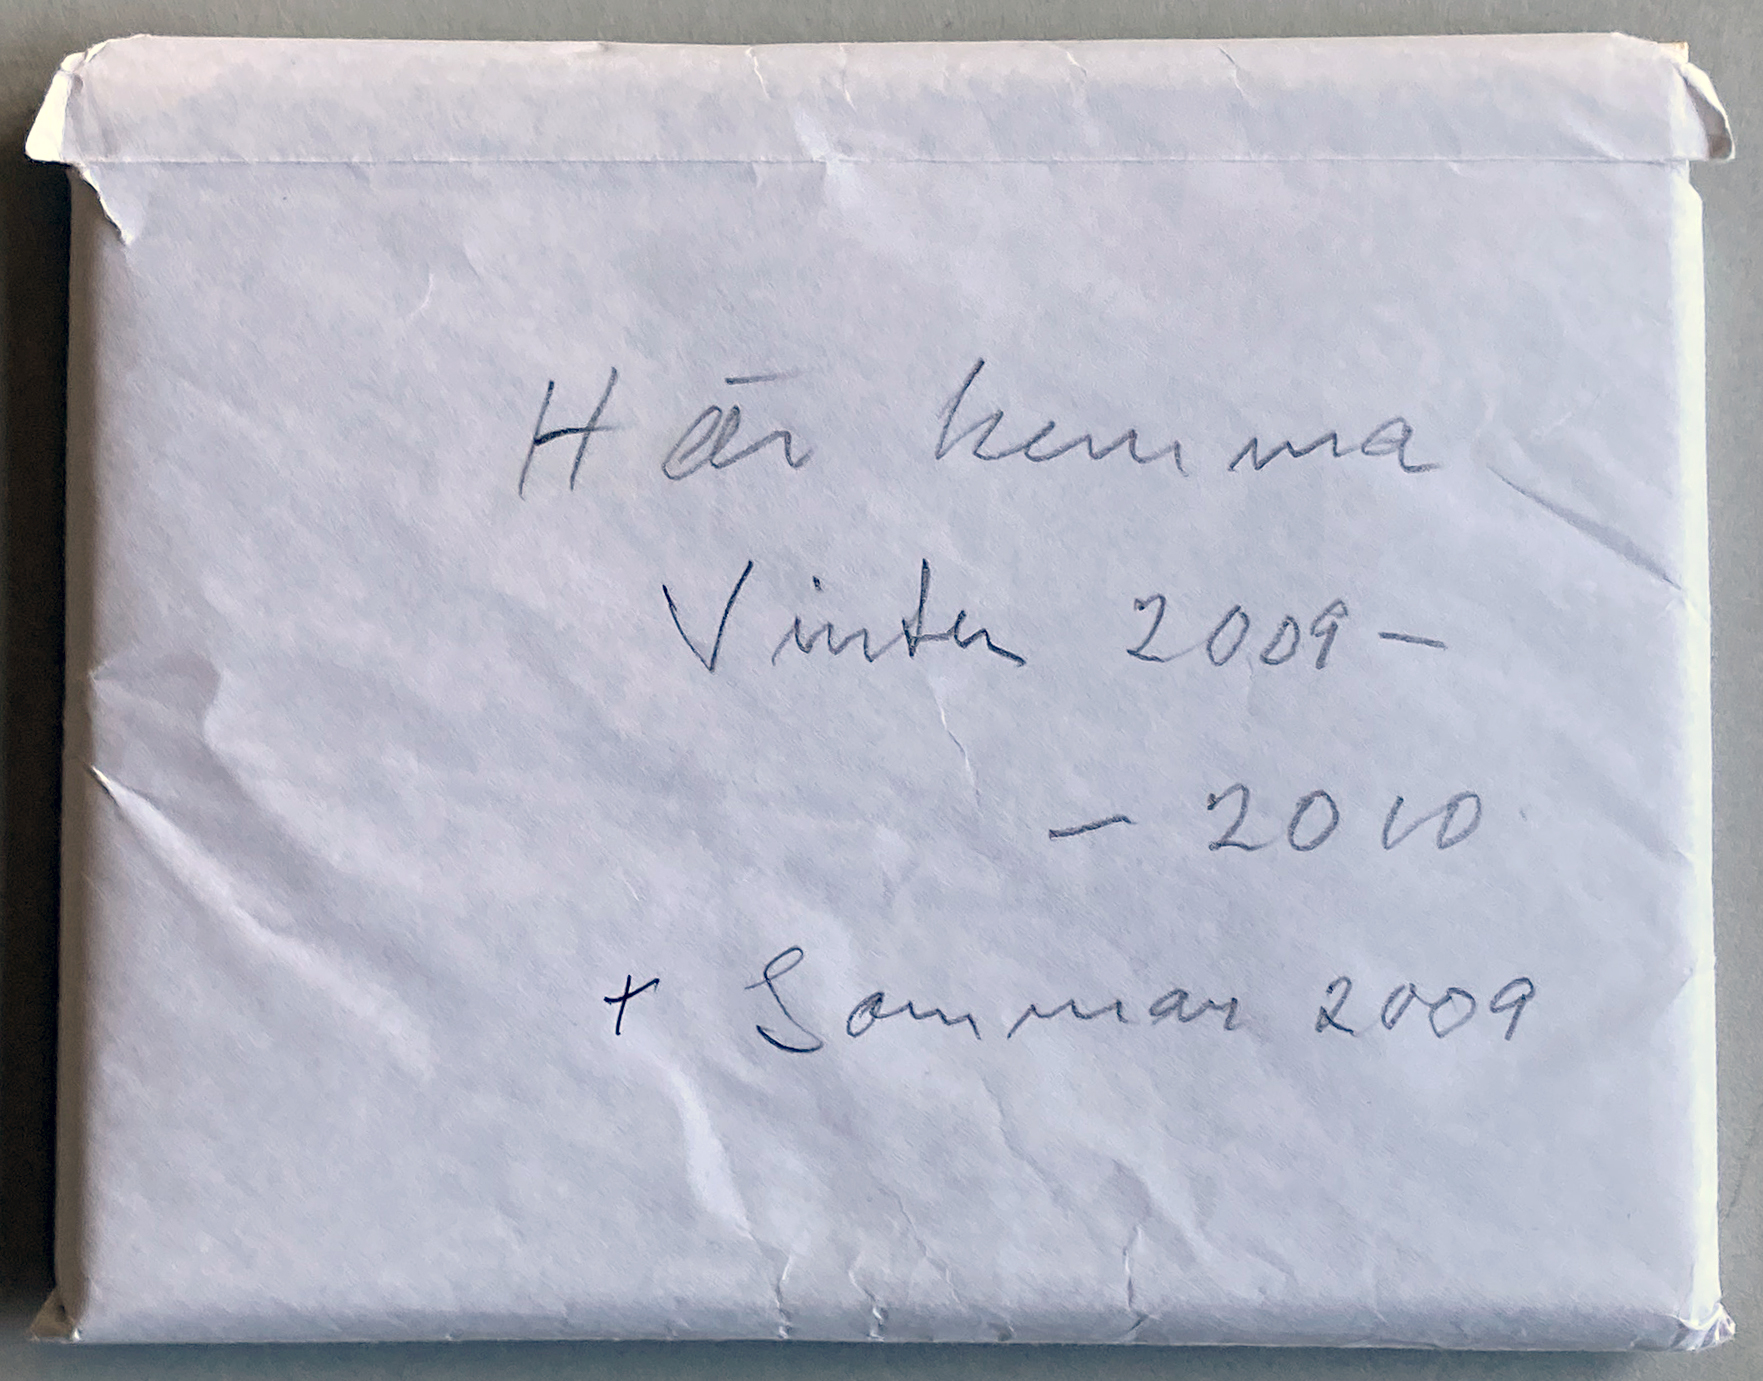 Här hemma
Vinter 2009-
- 2010
+ Sommar 2009